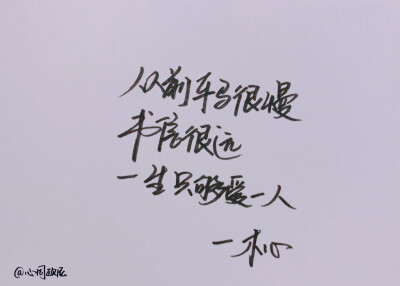 从前车马很慢
书信很远
一生只够爱一人
—木心